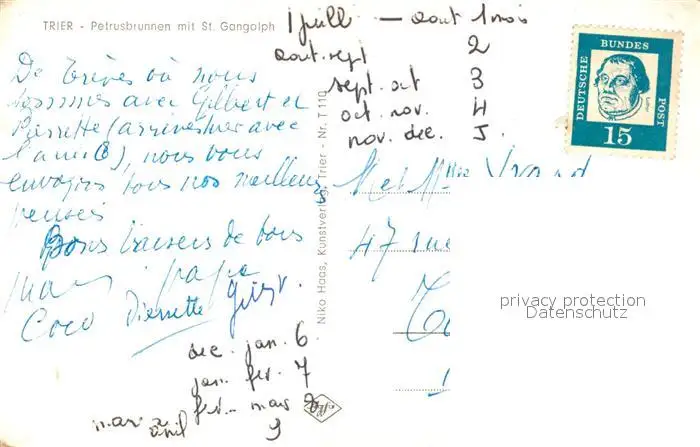 TRIER - Petrusbrunnen mit St. Gangolph
1 pill — août 1 mois
août. sept 2
sept. oct 3
oct. nov. 4
nov. dec. 5.
DEUTSCHE BUNDES POST
15
De Trèves où nous
sommes avec Gilbert et
Pierrette (arrivés hier avec
l'ami), nous vous
envoyons tous nos meilleurs
pensées
Bons baisers de tous
papa
Coco Pierrette
Niko Haas, Kunstverlag, Trier - Nr. T 110
M et Mme
47 rue
privacy protection
Datenschutz
dec. jan. 6
jan. fev. 7
fev. mars 8
avril 9
Agfa